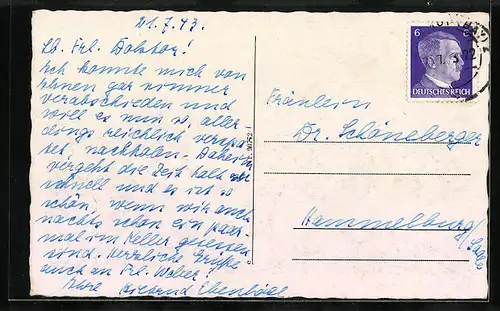 21.7.43.
Lb. Frl. Doktor!
Ich konnte mich von
Ihnen gar nimmer
verabschieden und
will es nun so, aller-
dings reichlich verspä-
tet, nachholen. Daheim
vergeht die Zeit halt
schnell und es ist so
schön, wenn wir auch
nachts schon ein paar-
mal im Keller gesessen
sind. Herzliche Grüße
auch an Frl. Weber!
Ihre
6
DEUTSCHES REICH
Fräulein
Dr. Schöneberger
Hammelburg/